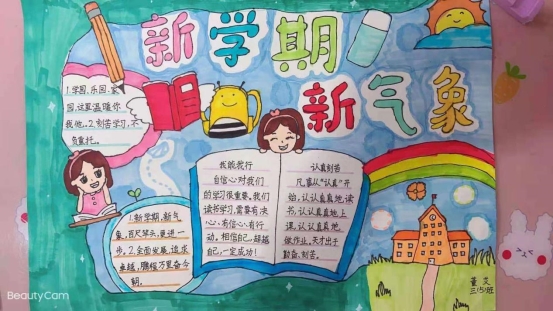 新学期
新气象
1.学园、乐园、家
园,这里温暖你
我他。2.刻苦学习,不
负重托。
我能我行
自信心对我们
的学习很重要,我们
读书学习,需要有决
心、有信心、有行
动。相信自己,超越
自己,一定成功!
认真刻苦
凡事从“认真”开
始,认认真真地读
书,认认真真地上
课,认认真真地
做作业。天才出于
勤奋、刻苦。
1.新学期,新气
象,百尺竿头,更进一
步。2.全面发展,追求
卓越,鹏程万里奋今
朝。
董艾
三(5)班
BeautyCam